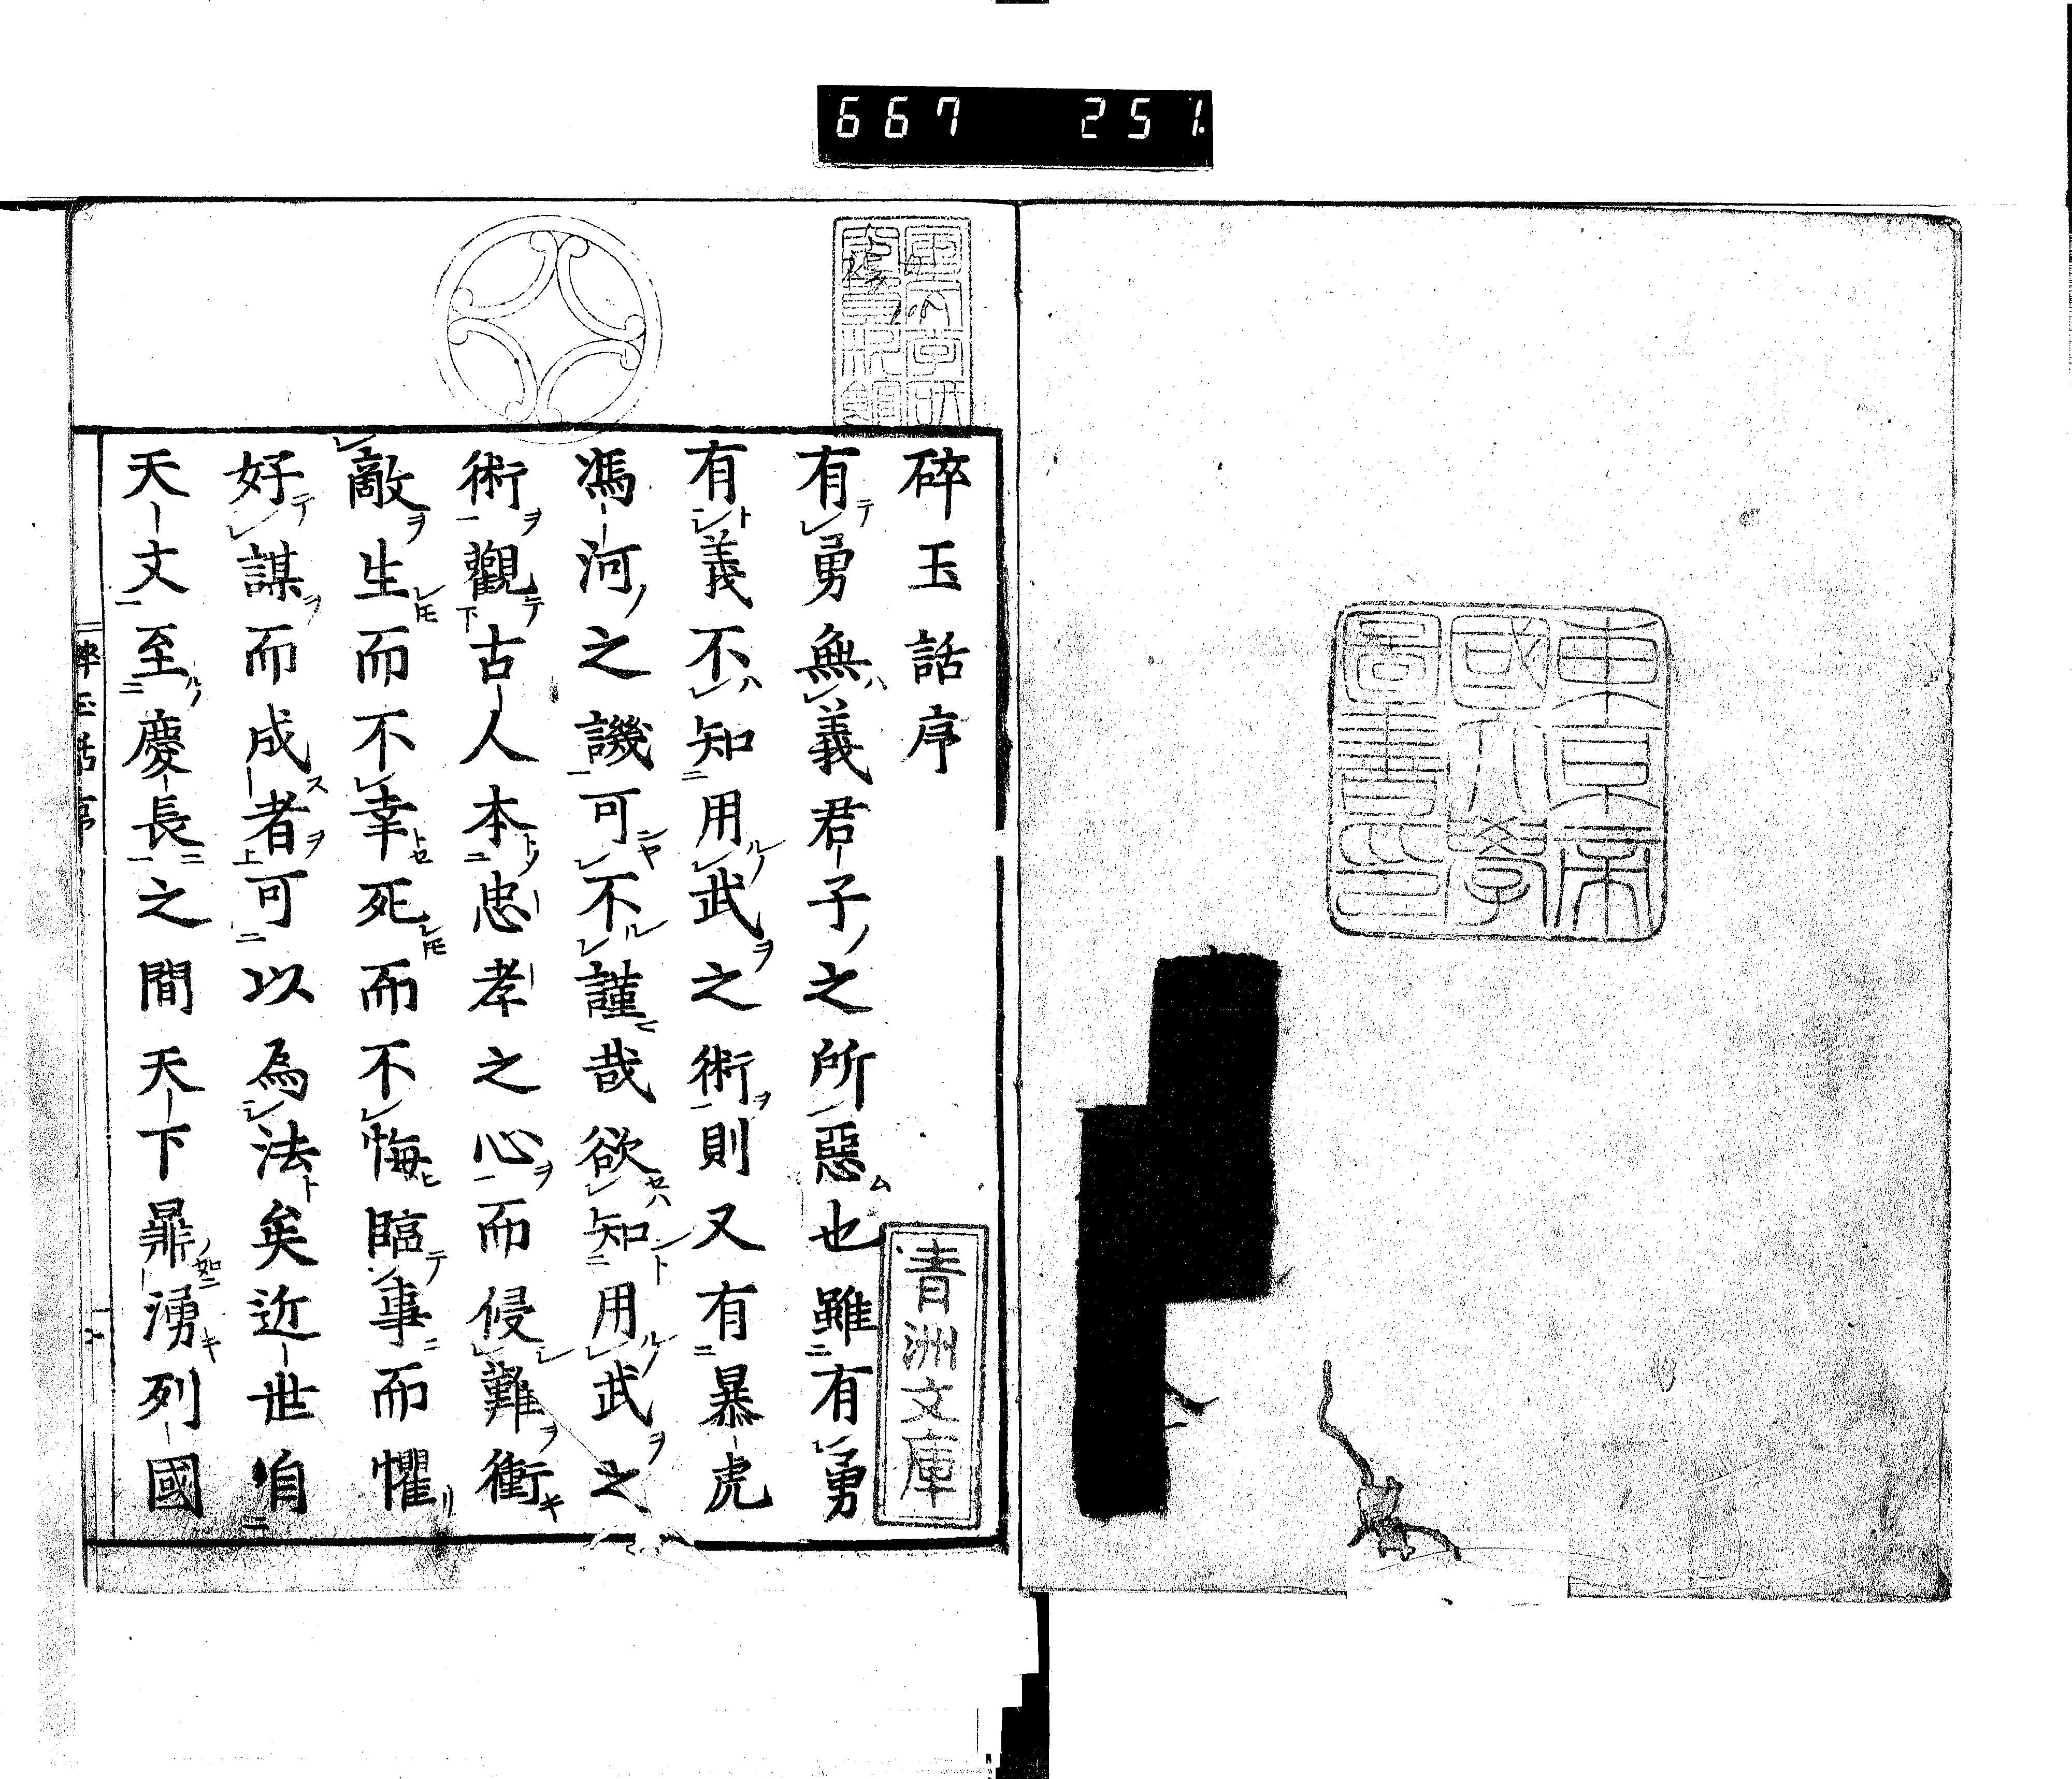 667 251.
東京帝
國大學
圖書印
碎玉話序
有勇無義君子之所惡也雖有勇
有義不知用武之術則又有暴虎
馮河之譏可不謹哉欲知用武之
術觀古人本忠孝之心而侵難衝
敵生而不幸死而不悔臨事而懼
好謀而成者可以為法矣近世自
天文至慶長之間天下鼎湧列國
青洲文庫
碎玉話序